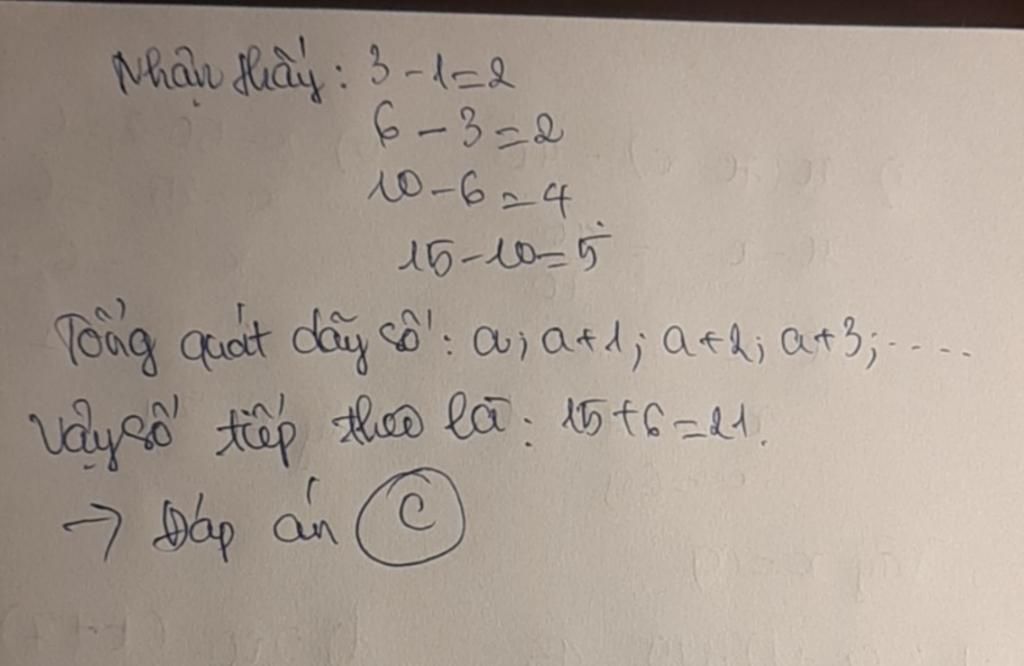 Nhận thấy: 3 - 1 = 2
6 - 3 = 2
10 - 6 = 4
15 - 10 = 5
Tổng quát dãy số: a; a+1; a+2; a+3; .....
Vậy số tiếp theo là: 15 + 6 = 21.
→ Đáp án C